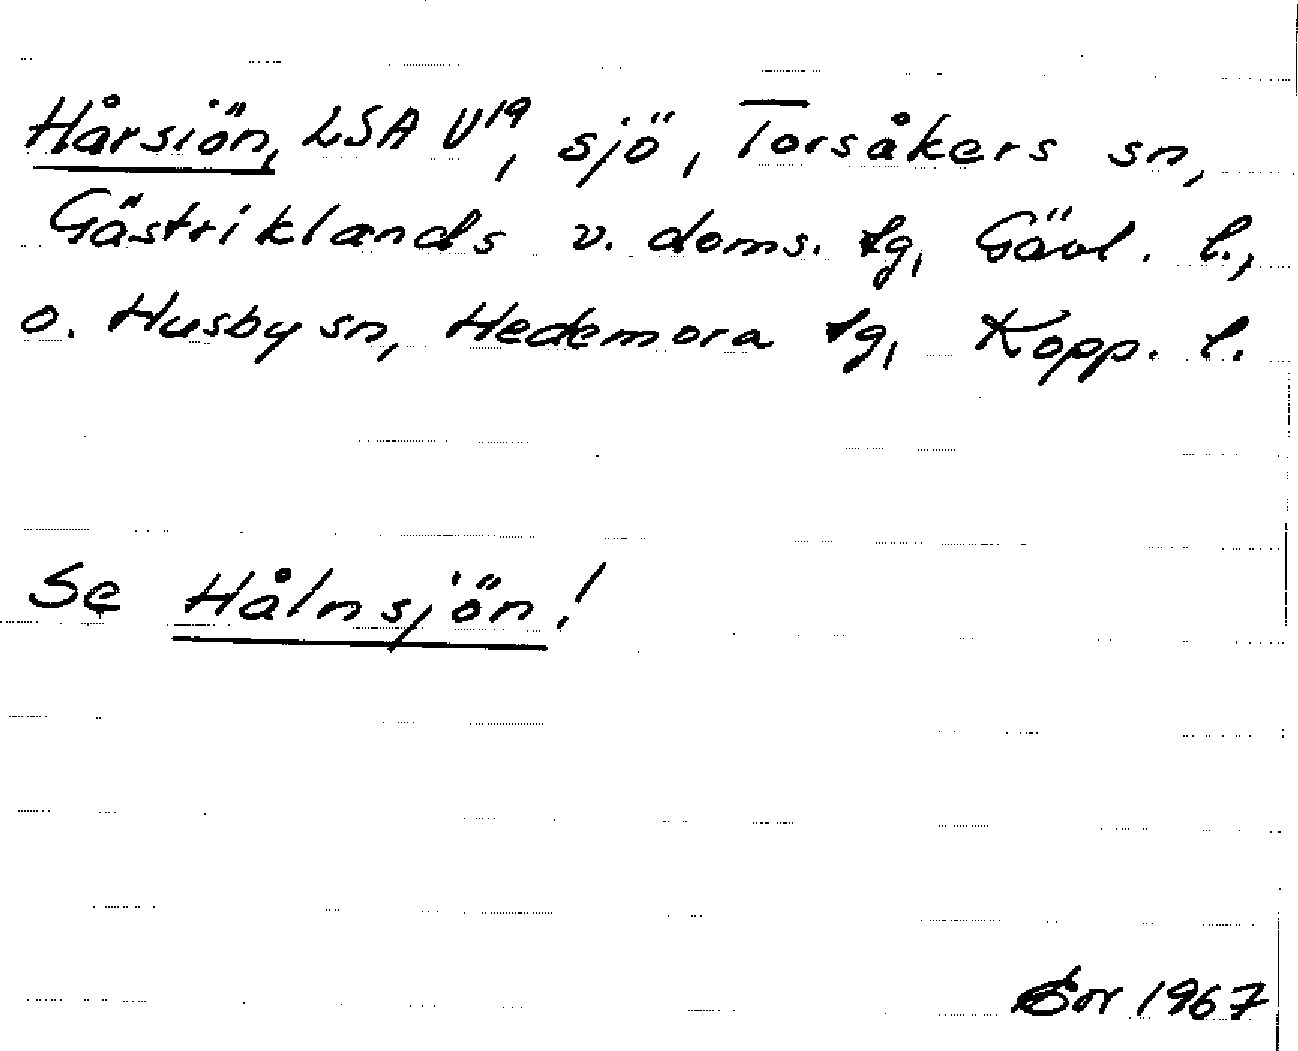 Hårsiön, LSA U¹⁹, sjö, Torsåkers sn,
Gästriklands v. doms. tg, Gävl. l.,
o. Husby sn, Hedemora tg, Kopp. l.
Se Hålnsjön!
1967